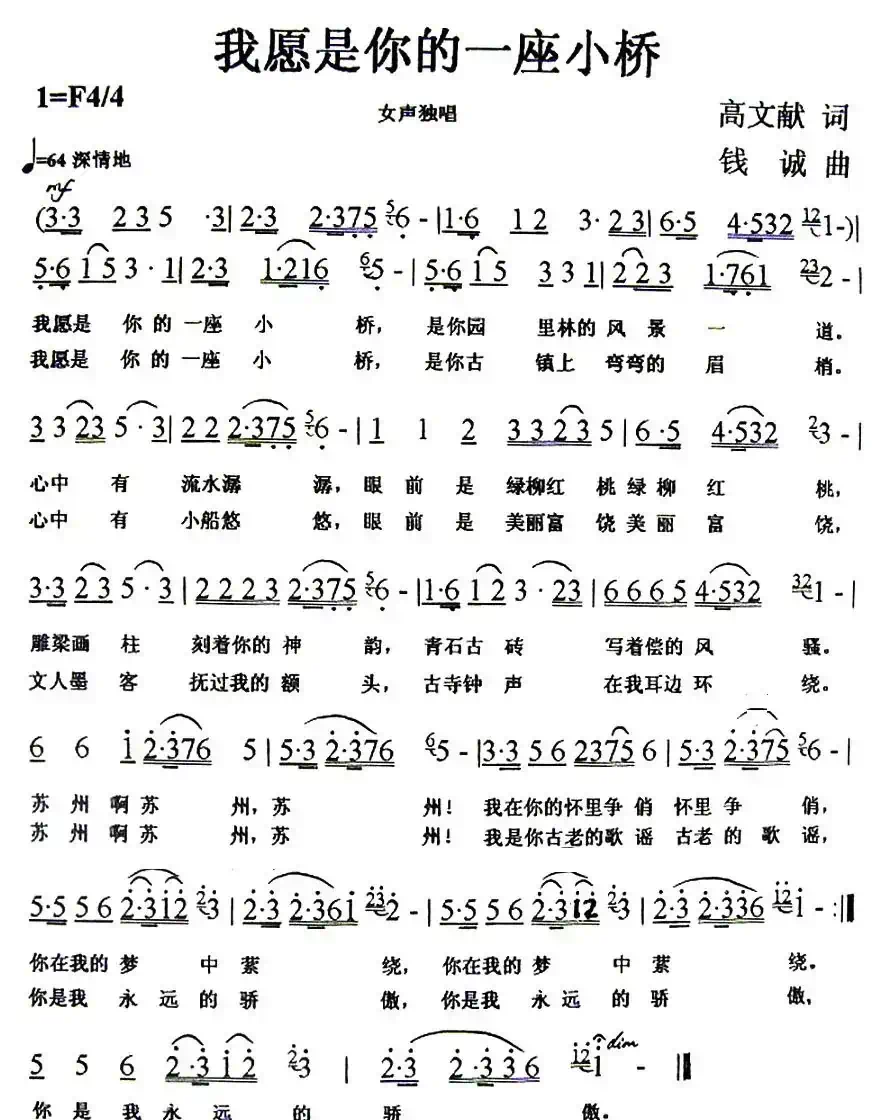 我愿是你的一座小桥
1=F4/4
女声独唱
高文献 词
♩=64 深情地
钱 诚 曲
mf
(3·3 2 3 5 ·3| 2·3 2·375 56 - |1·6 1 2 3· 2 3| 6·5 4·532 121-)|
5·6 1 5 3 · 1| 2·3 1·216 65 - | 5·6 1 5 3 3 1 | 2 2 3 1·761 232 - |
我愿是 你 的 一座 小 桥， 是你园 里林的 风 景 一 道。
我愿是 你 的 一座 小 桥， 是你古 镇上 弯弯的 眉 梢。
3 3 23 5 · 3| 2 2 2·375 56 - | 1 1 2 3 3 2 3 5 | 6 ·5 4·532 23 - |
心中 有 流水潺 潺，眼 前 是 绿柳红 桃绿 柳 红 桃，
心中 有 小船悠 悠，眼 前 是 美丽富 饶美 丽 富 饶，
3·3 2 3 5 · 3 | 2 2 2 3 2·375 56 - |1·6 1 2 3 · 23 | 6 6 6 5 4·532 321 - |
雕梁画 柱 刻着你的 神 韵，青石古 砖 写着偿的 风 骚。
文人墨 客 抚过我的 额 头，古寺钟 声 在我耳边 环 绕。
6 6 1 2·376 5 | 5·3 2·376 65 - |3·3 5 6 2375 6 | 5·3 2·375 56 - |
苏 州 啊 苏 州，苏 州！我在你的怀里争 俏 怀里 争 俏，
苏 州 啊 苏 州，苏 州！我是你古老的歌 谣 古老 的 歌 谣，
5·5 5 6 2·312 23 | 2·3 2·361 232 - | 5·5 5 6 2·312 23 | 2·3 2·336 121 - :‖
你在我的 梦 中 萦 绕，你在我的 梦 中 萦 绕。
你是我 永 远 的 骄 傲，你是我 永 远 的 骄 傲，
dim
5 5 6 2·3 1 2 23 | 2·3 2·3 3 6 121 - ‖
你 是 我 永 远 的 骄 傲。